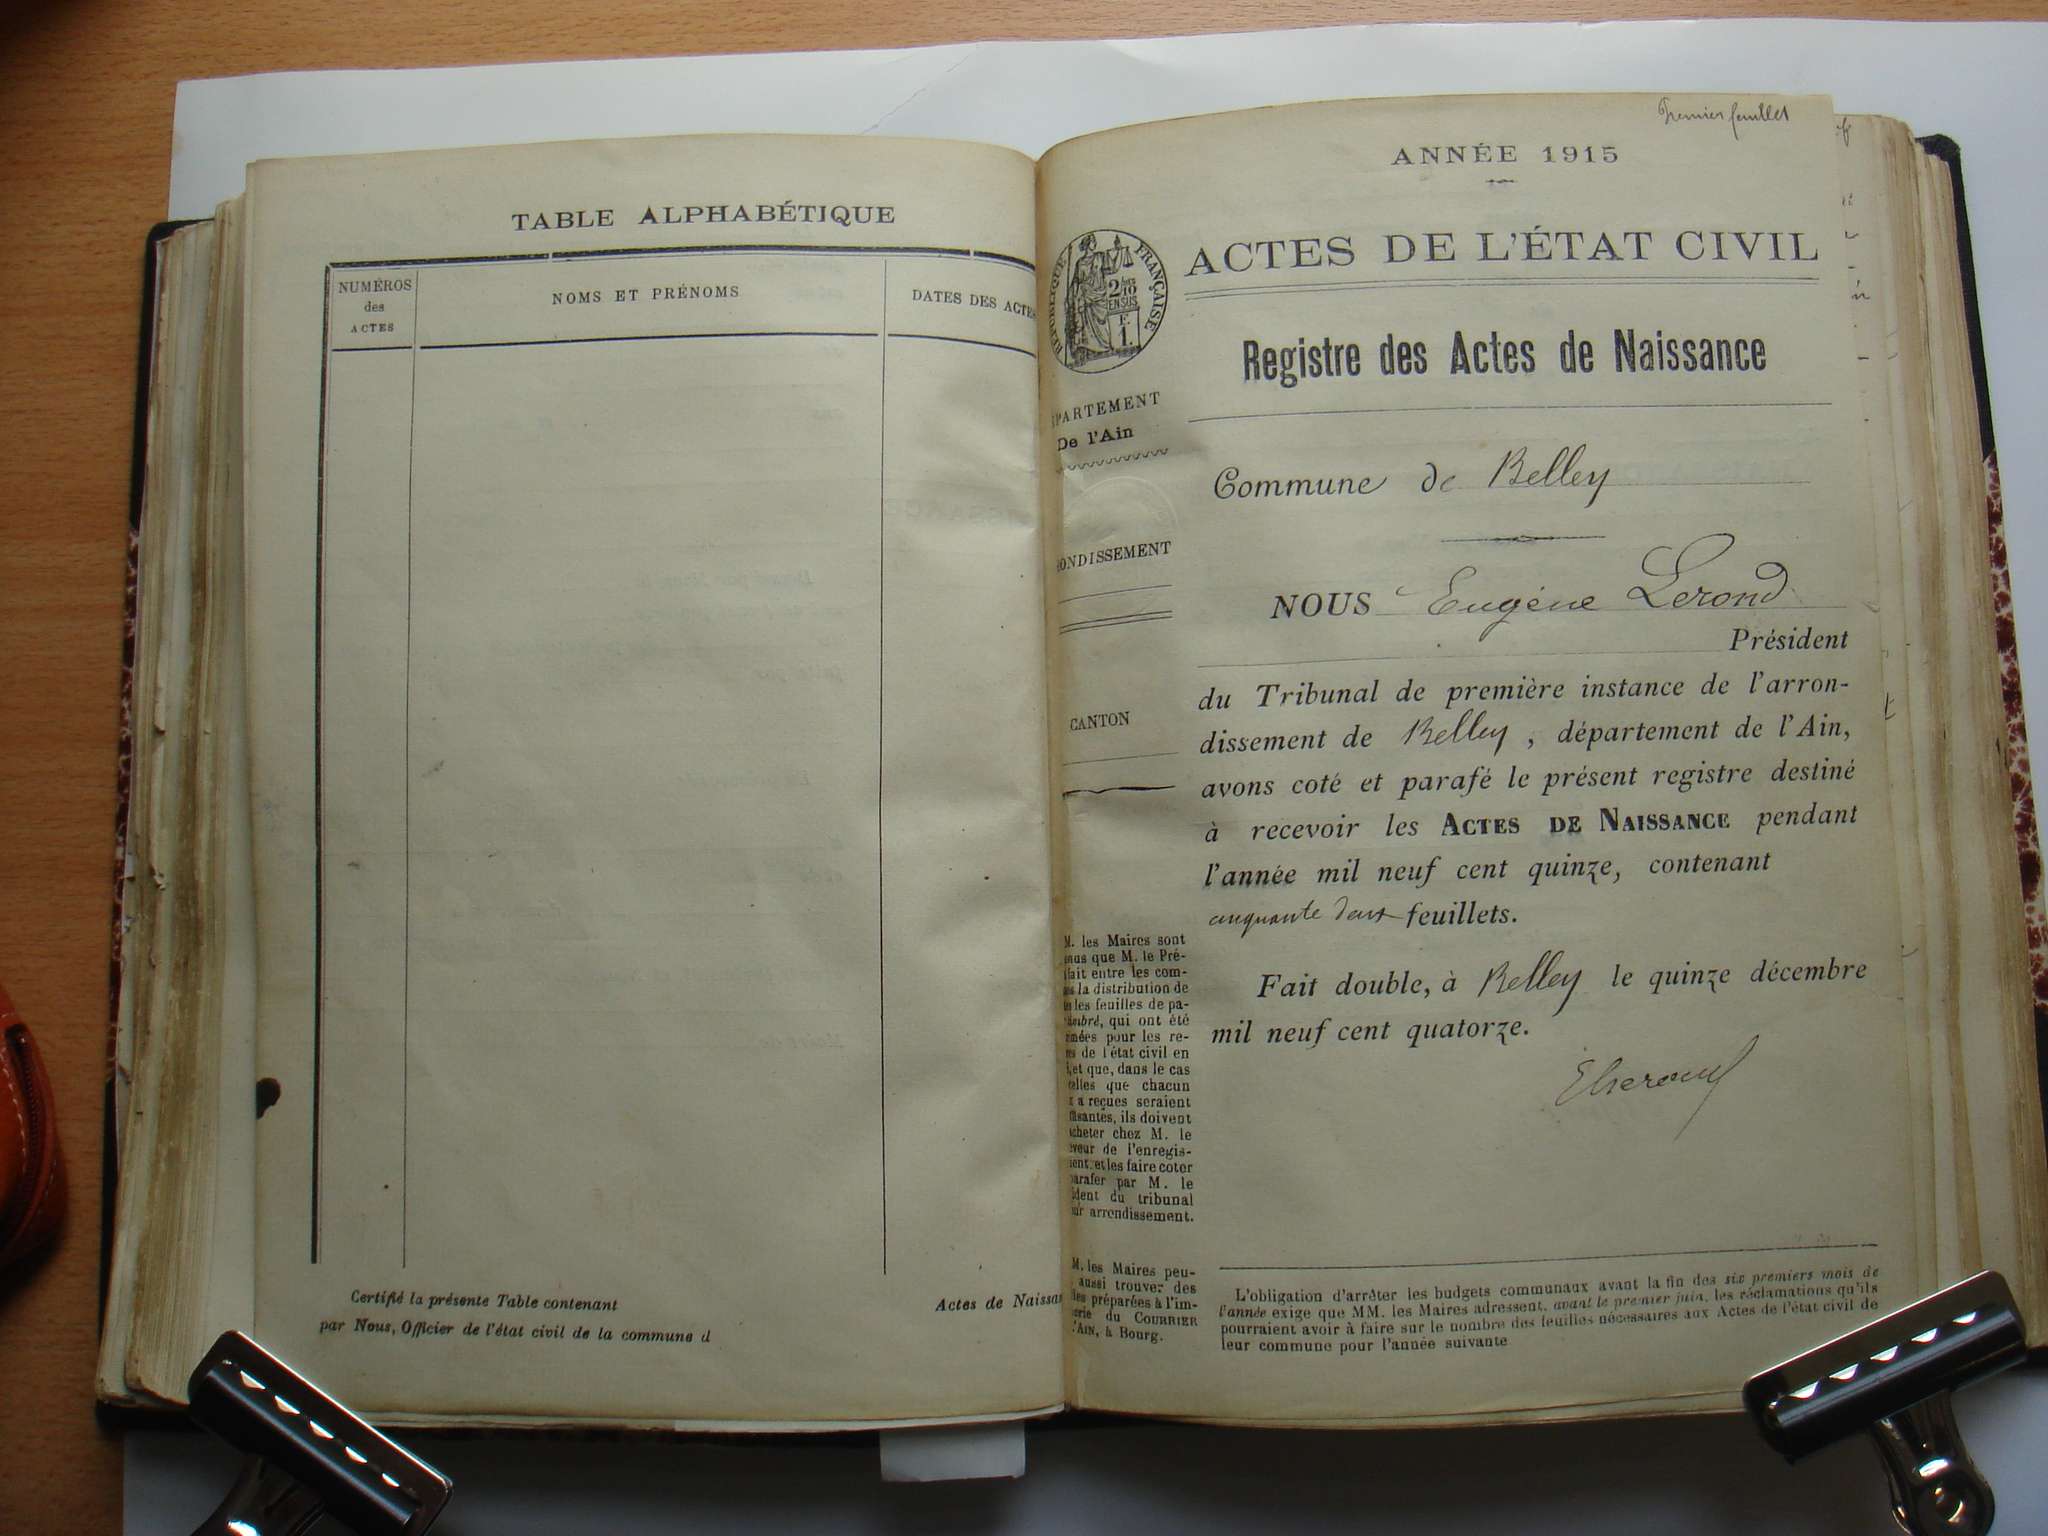 TABLE ALPHABÉTIQUE
NUMÉROS
des
ACTES
NOMS ET PRÉNOMS
DATES DES ACTES
Certifié la présente Table contenant
par Nous, Officier de l'état civil de la commune d
Actes de Naissan
Premier feuillet
ANNÉE 1915
RÉPUBLIQUE FRANÇAISE
2/10
EN SUS
F.
1.
ACTES DE L'ÉTAT CIVIL
Registre des Actes de Naissance
PARTEMENT
De l'Ain
ONDISSEMENT
CANTON
M. les Maires sont
enus que M. le Pré-
fait entre les com-
la distribution de
les feuilles de pa-
timbré, qui ont été
mées pour les re-
de l'état civil en
et que, dans le cas
celles que chacun
a reçues seraient
ffisantes, ils doivent
acheter chez M. le
eveur de l'enregis-
ment, et les faire coter
parafer par M. le
ident du tribunal
arrondissement.
M. les Maires peu-
aussi trouver des
les préparées à l'im-
erie du COURRIER
l'AIN, à Bourg.
Commune de Belley
NOUS Eugène Lerond
Président
du Tribunal de première instance de l'arron-
dissement de Belley, département de l'Ain,
avons coté et parafé le présent registre destiné
à recevoir les ACTES DE NAISSANCE pendant
l'année mil neuf cent quinze, contenant
cinquante deux feuillets.
Fait double, à Belley le quinze décembre
mil neuf cent quatorze.
L'obligation d'arrêter les budgets communaux avant la fin des six premiers mois de
l'année exige que MM. les Maires adressent, avant le premier juin, les réclamations qu'ils
pourraient avoir à faire sur le nombre des feuilles nécessaires aux Actes de l'état civil de
leur commune pour l'année suivante